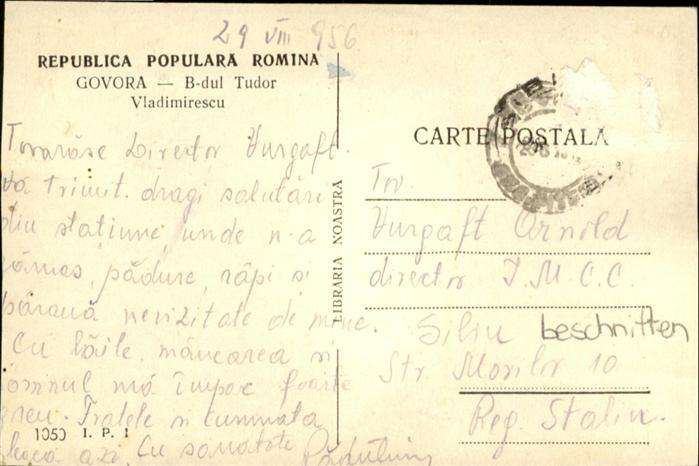 29 VIII 956
REPUBLICA POPULARĂ ROMINA
GOVORA — B-dul Tudor
Vladimirescu
Tovarăse Director Vurgaft.
Vă trimit dragi salutări
din statiune, unde n-a
rămas, pădure, râpi si
părauă nevizitate de mine.
Cu băile, mâncarea si
somnul mă împac foarte
greu. Fratele si cumnata
pleacă azi. Cu sanatate
LIBRARIA NOASTRĂ
1050 I. P. 1
CARTE POSTALĂ
Tov.
Vurgaft Arnold
director I.M.C.C.
Siliu beschnitten
Str. Morilor 10
Reg. Stalin.